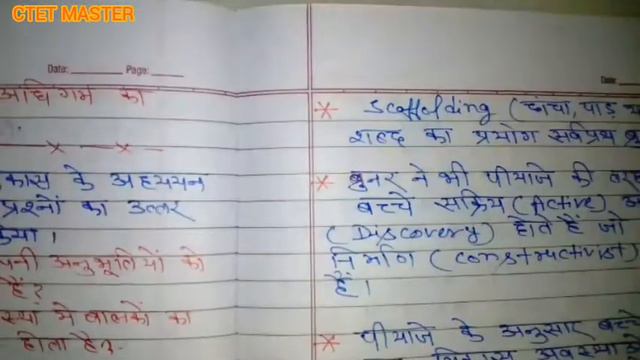 CTET MASTER
Date: Page:
Date:
अधिगम का
के अध्ययन
प्रश्नों का उत्तर
किया।
अनुभूतियों को
है?
में बालकों का
होता है?
* Scaffolding (ढांचा, पाड़
शब्द का प्रयोग सर्वप्रथ
* ब्रुनर ने भी पीयाजे की तरह
बच्चे सक्रिय (Active)
(Discovery) होते हैं जो
निर्माण (constructivist)
हैं।
* पीयाजे के अनुसार बच्चे